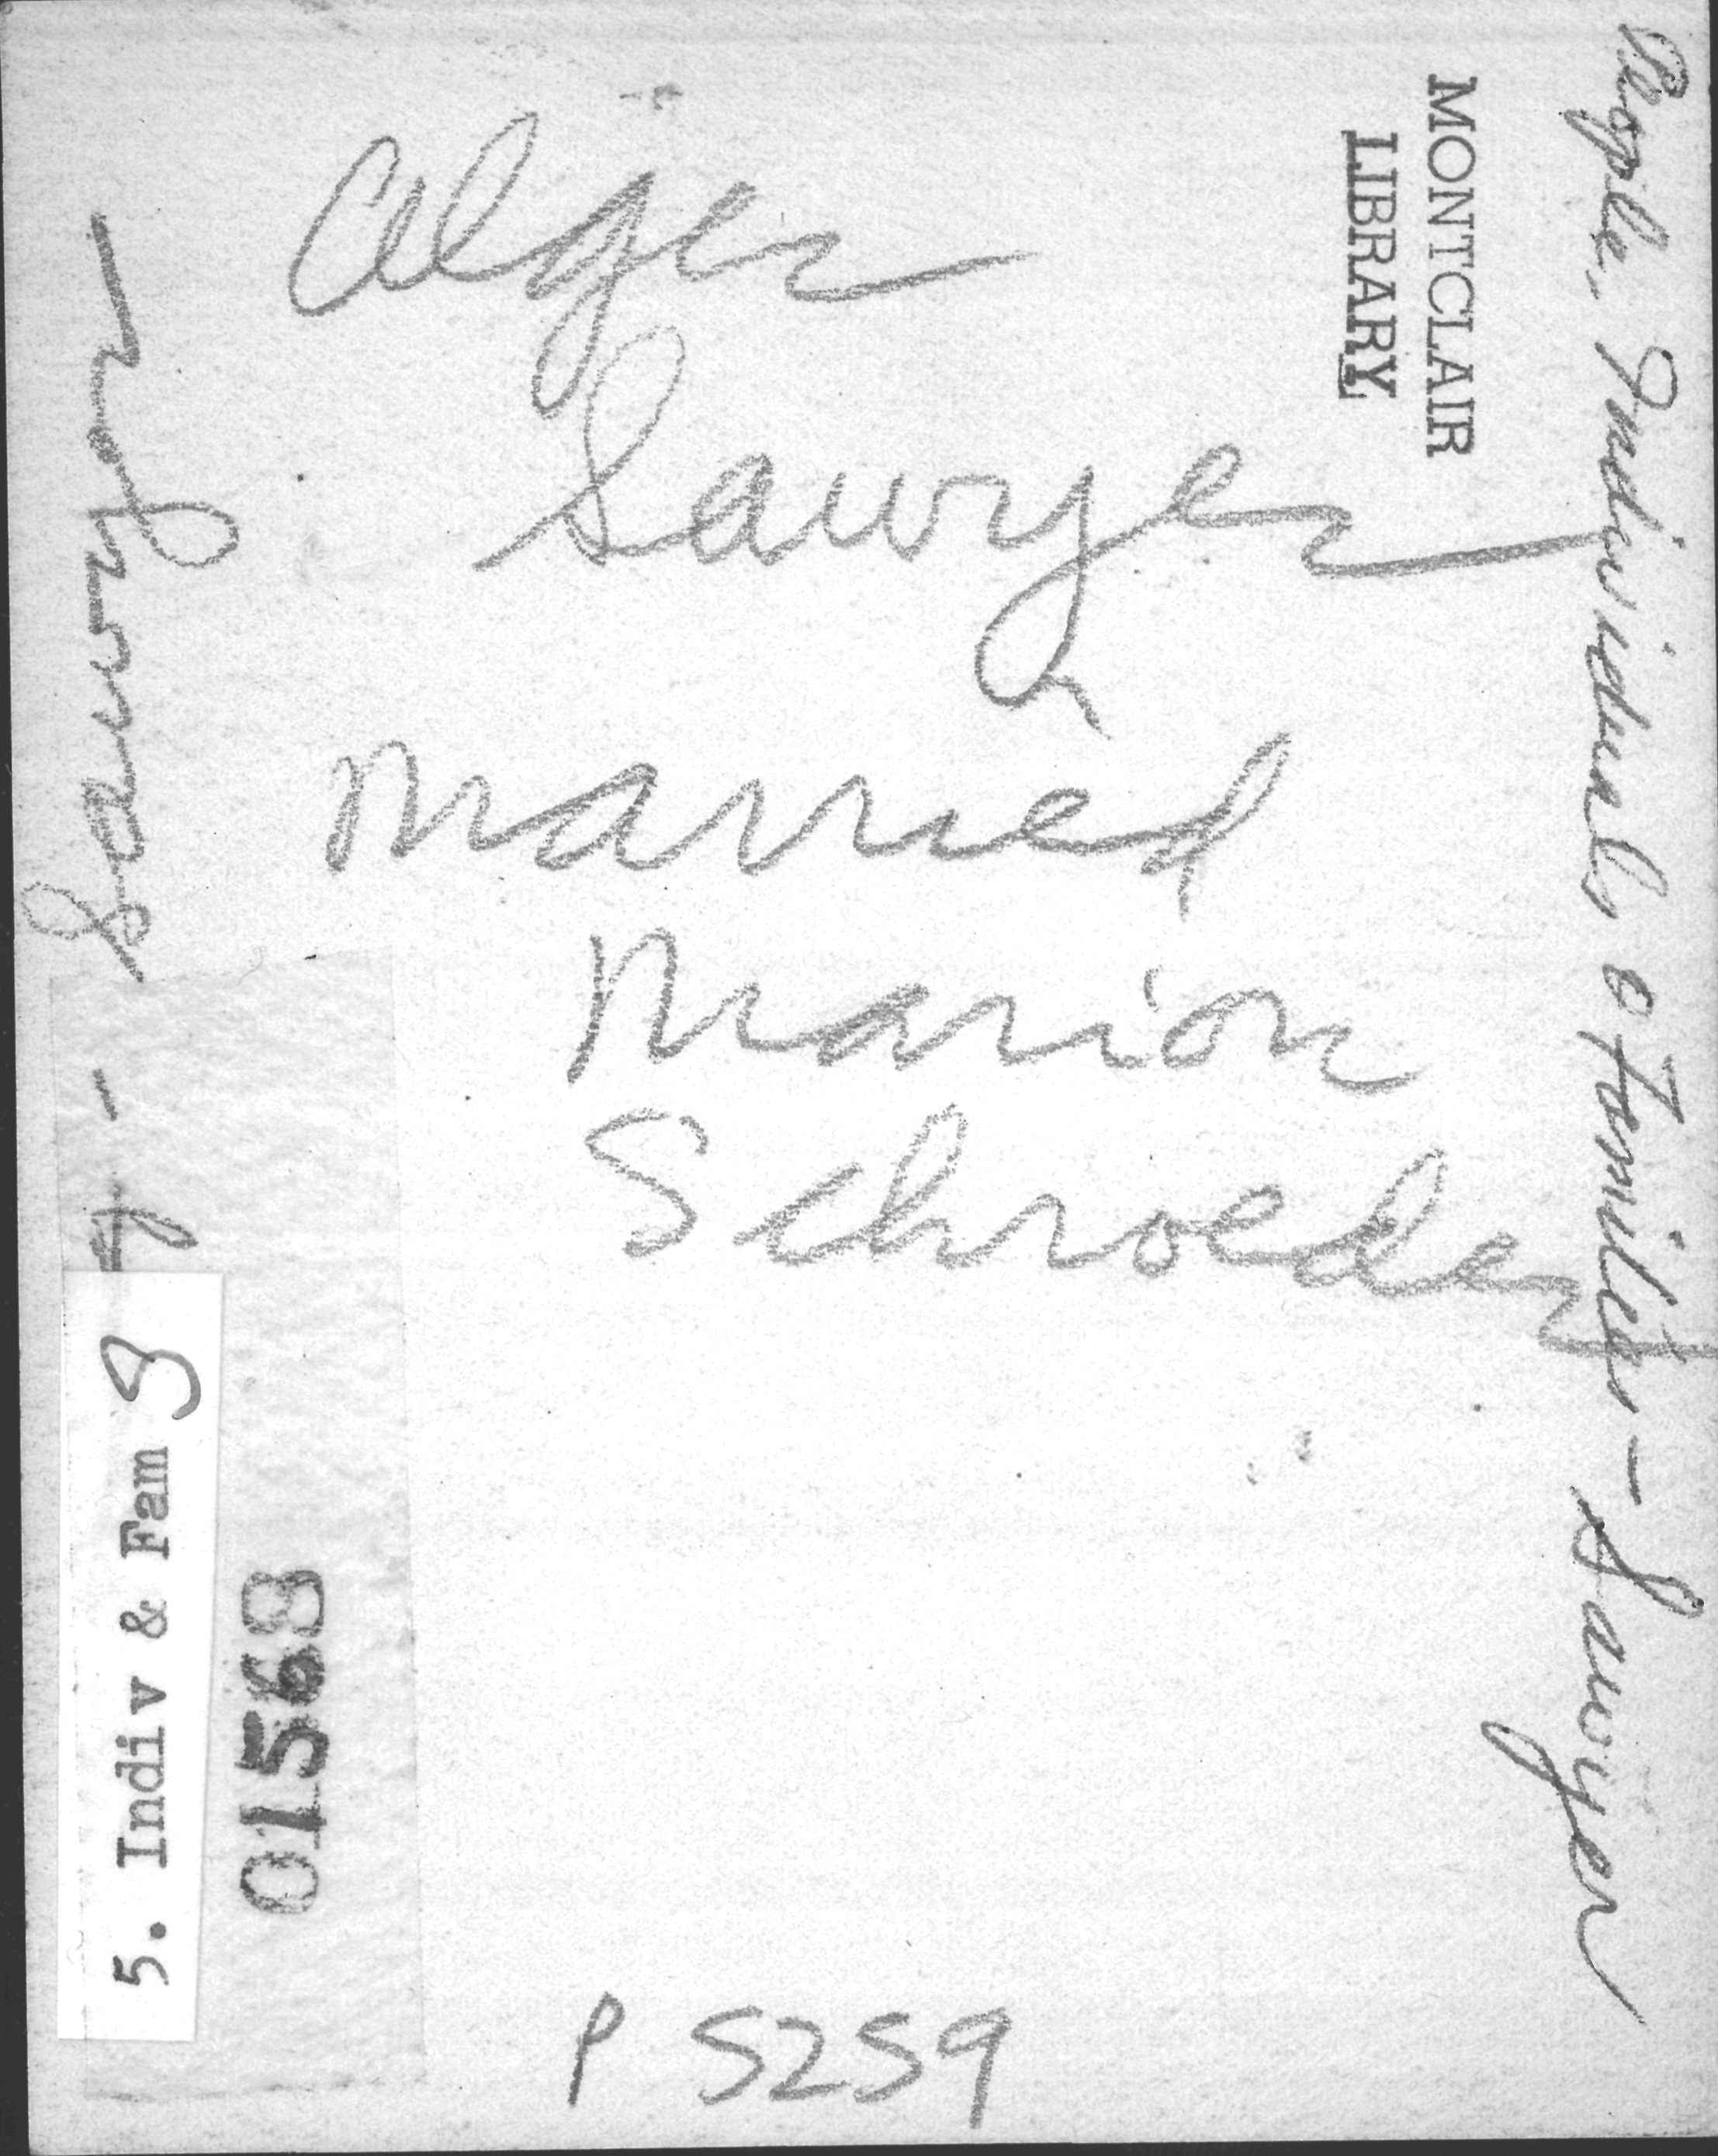 Alger
Sawyer
Married
Marion
Schroeder
P 5259
MONTCLAIR
LIBRARY
People, Individuals & Families - Sawyer
- Sawyer
5. Indiv & Fam S
01568